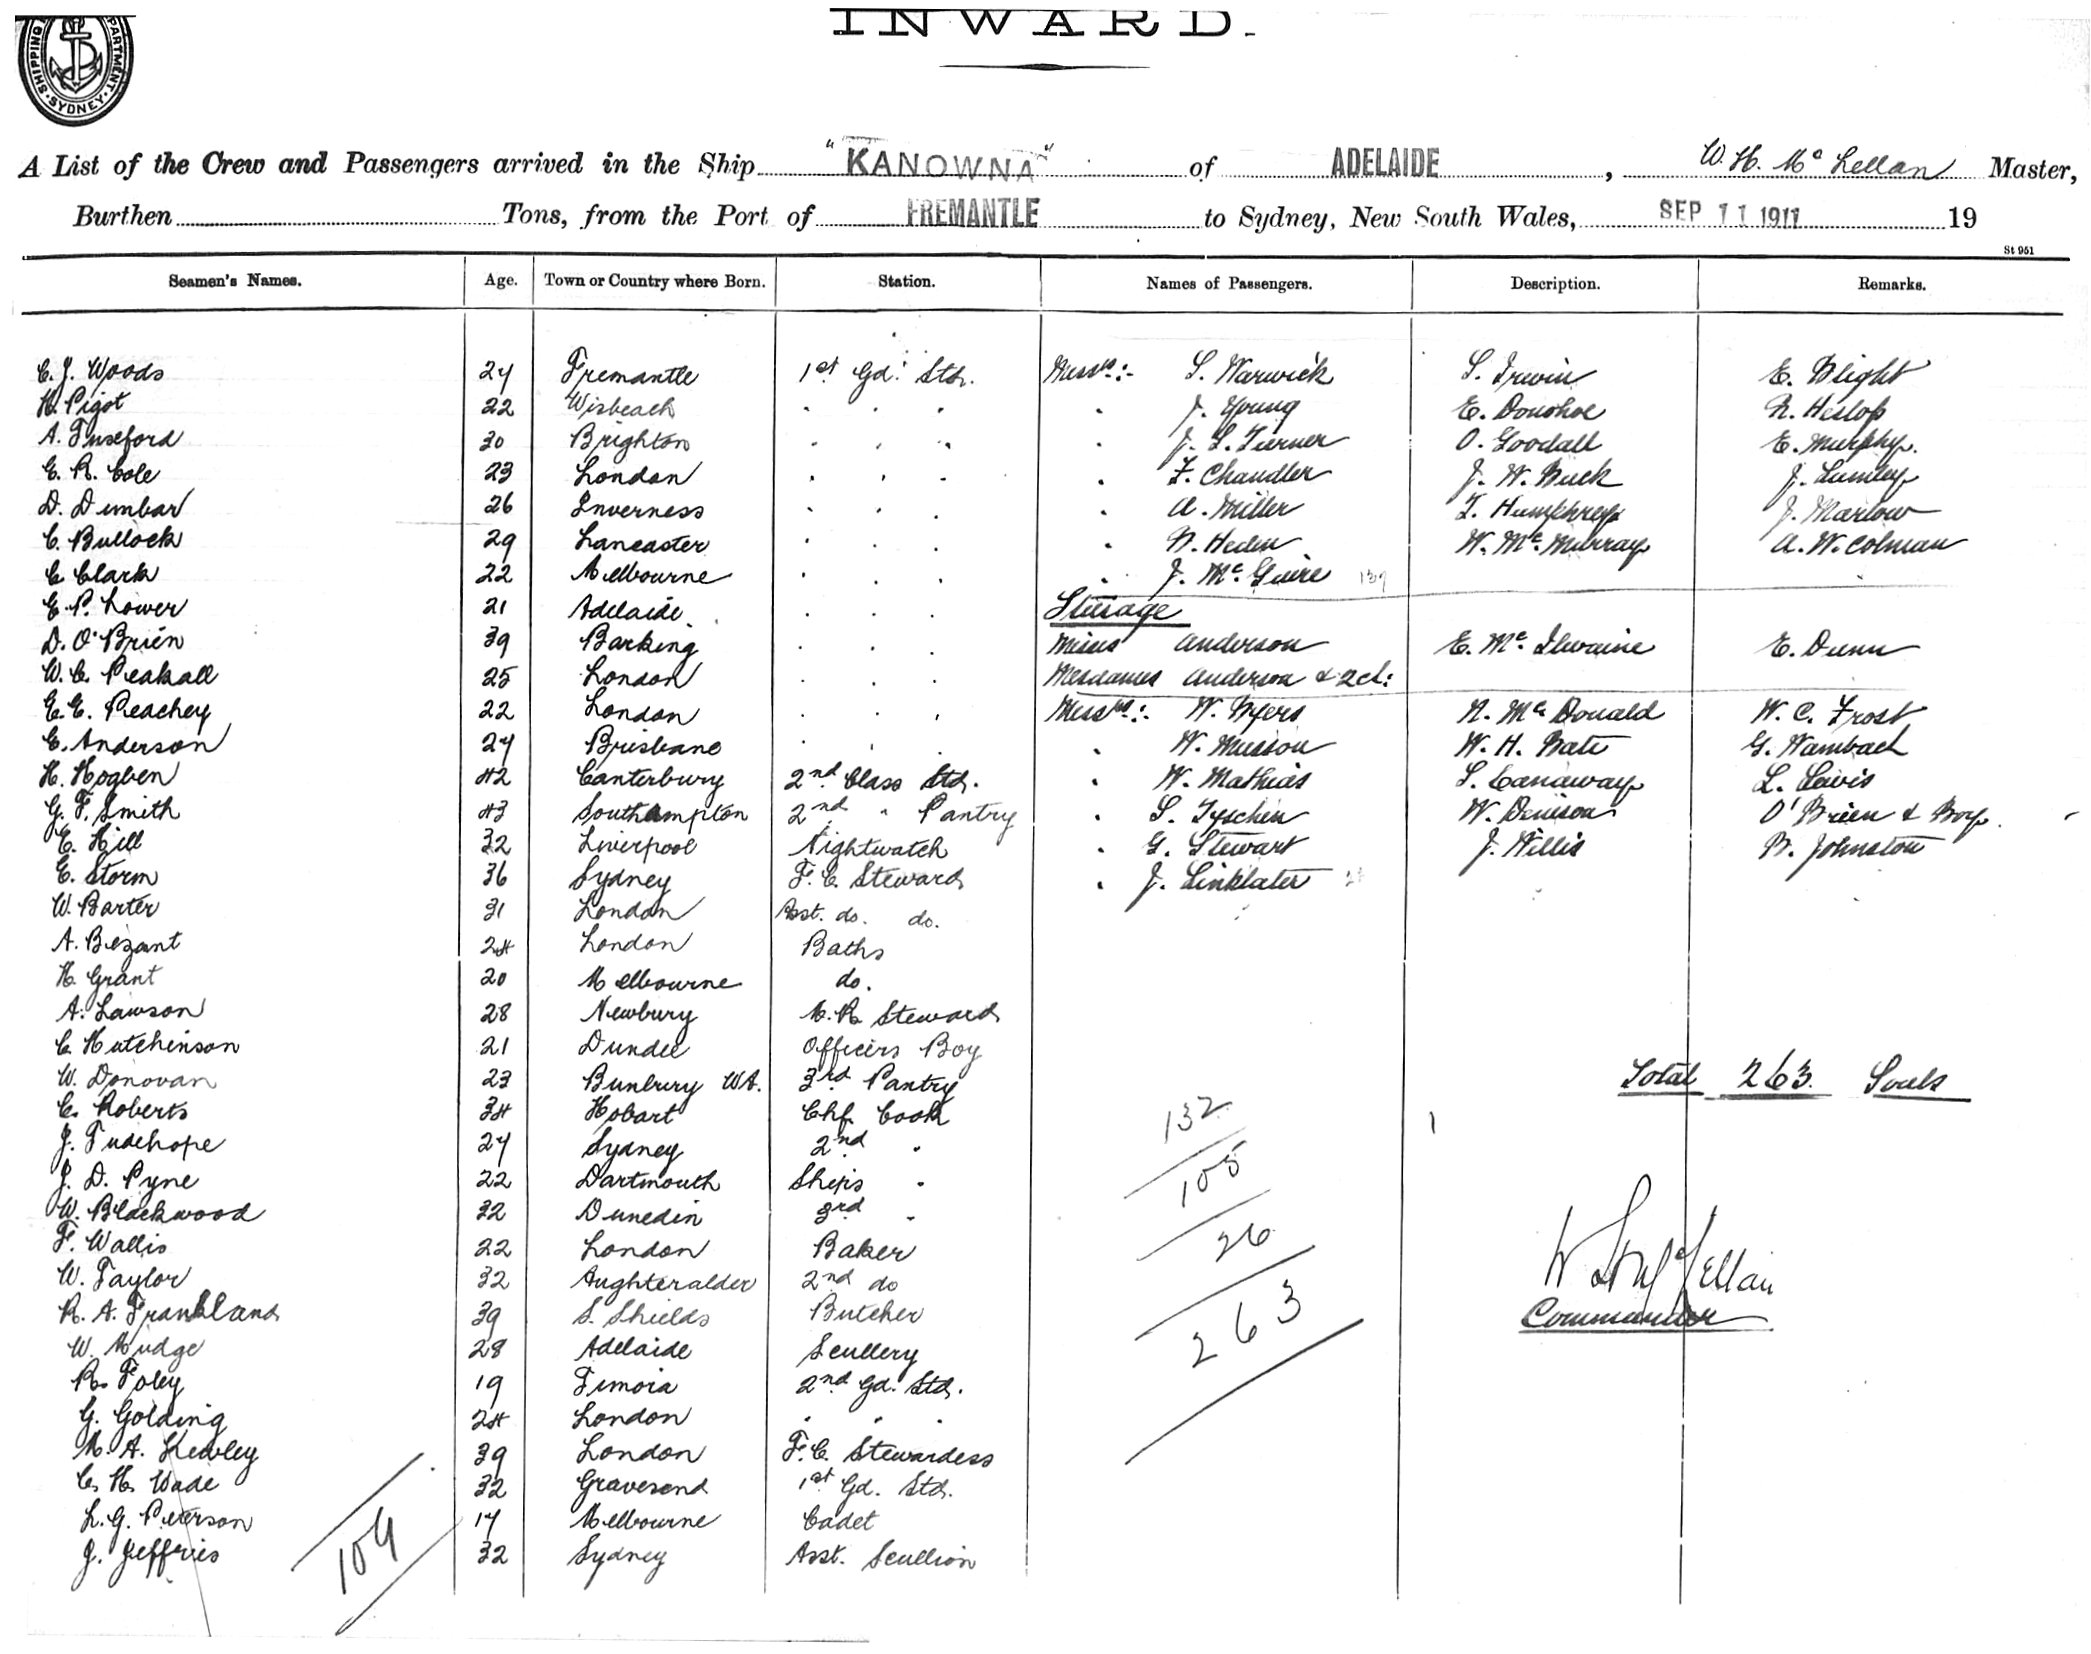 INWARD.
SHIPPING DEPARTMENT SYDNEY
A List of the Crew and Passengers arrived in the Ship "KANOWNA" of ADELAIDE, W. H. Mc Lellan Master,
Burthen Tons, from the Port of FREMANTLE to Sydney, New South Wales, SEP 11 1911 19
St 951
Seamen's Names. Age. Town or Country where Born. Station. Names of Passengers. Description. Remarks.
C. J. Woods 24 Fremantle 1st Gd. Std. Messrs:- S. Warwick S. Irwin E. Blight
H. Pigot 22 Wisbeach " " " " J. Young E. Donohoe R. Heslop
A. Tuseford 30 Brighton " " " " J. S. Turner O. Goodall E. Murphy.
E. R. Cole 23 London " " " " F. Chandler J. W. Buck J. Lumley
D. Dunbar 26 Inverness " " " " A. Miller F. Humphreys J. Marlow
C. Bullock 29 Lancaster " " " " N. Heden W. Mc Murray A. W. Colman
C. Clark 22 Melbourne " " " " J. Mc Guire
E. P. Lower 21 Adelaide " " " Steerage
D. O'Brien 39 Barking " " " Misses Anderson E. Mc Ilwaine E. Dunn
W. C. Peakall 25 London " " " Mesdames Anderson & 2 ch:
E. E. Peachey 22 London " " " Messrs:- W. Byers N. Mc Donald W. C. Frost
E. Anderson 24 Brisbane " " " " W. Musson W. H. Bate G. Wambach
H. Hogben 42 Canterbury 2nd Class Std. " W. Mathias S. Canaway L. Lewis
G. F. Smith 43 Southampton 2nd " Pantry " S. Tyschen W. Denison O'Brien & Boy.
E. Hill 32 Liverpool Nightwatch " G. Stewart J. Willis B. Johnston
E. Storm 36 Sydney F. C. Steward " J. Linklater
W. Barter 31 London Asst. do. do.
A. Bezant 24 London Baths
H. Grant 20 Melbourne do.
A. Lawson 28 Newbury M. R. Steward
C. Hutchinson 21 Dundee Officers Boy
W. Donovan 23 Bunbury W.A. 3rd Pantry
Total 263 Souls
C. Roberts 34 Hobart Chf. Cook
132
J. Tudehope 24 Sydney 2nd "
J. D. Pyne 22 Dartmouth Ships "
105
W. Blackwood 32 Dunedin 3rd "
F. Wallis 22 London Baker
26
W. Taylor 32 Aughteralder 2nd do
W H McLellan
R. A. Frankland 39 S. Shields Butcher
Commander
W. Mudge 28 Adelaide Scullery
263
R. Foley 19 Temora 2nd Gd. Std.
G. Golding 24 London " " "
M. A. Kewley 39 London F. C. Stewardess
C. H. Wade 32 Gravesend 1st Gd. Std.
L. G. Peterson 17 Melbourne Cadet
J. Jeffries 32 Sydney Asst. Scullion
104